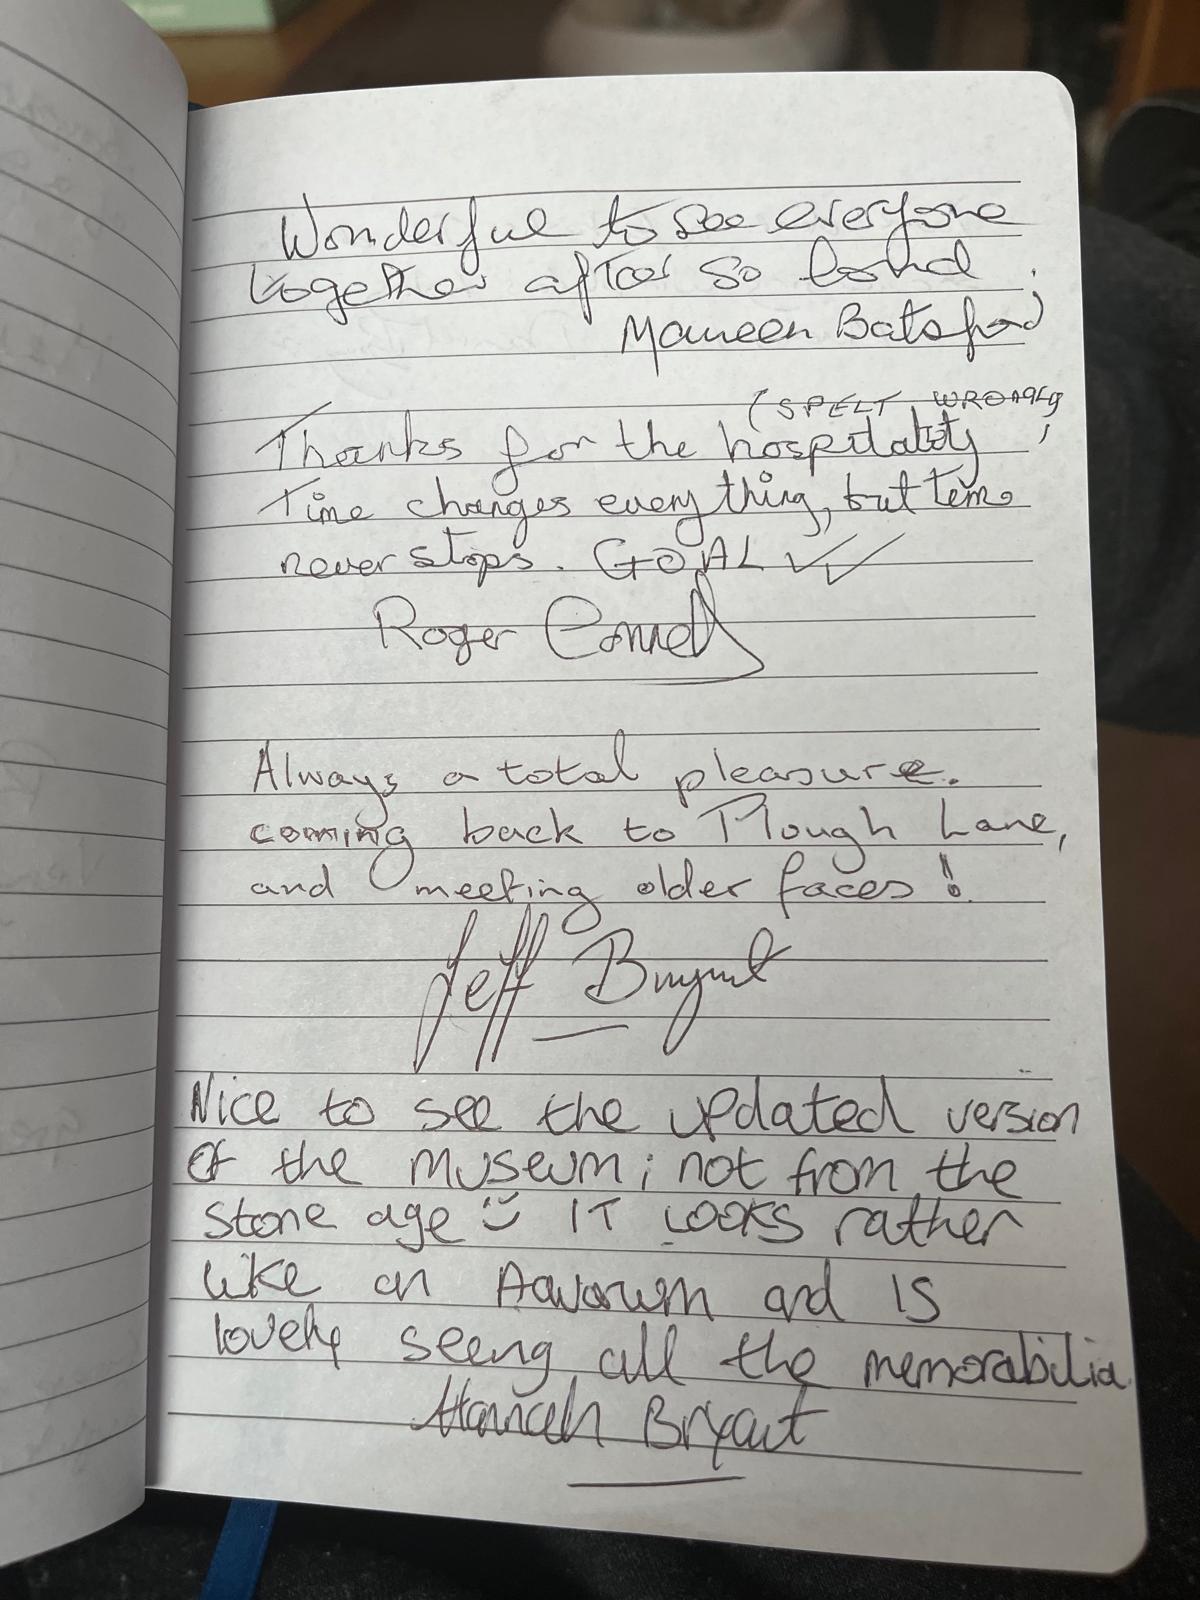 Wonderful to see everyone
together after so
Maureen Batsford
(SPELT WRONGLY
Thanks for the hospitality
Time changes everything, but time
never stops. GOAL
Roger Connell
Always a total pleasure.
coming back to Plough Lane,
and meeting older faces!
Jeff Bryant
Nice to see the updated version
of the museum; not from the
stone age IT LOOKS rather
like an and IS
lovely seeng all the memorabilia
Hannah Bryant